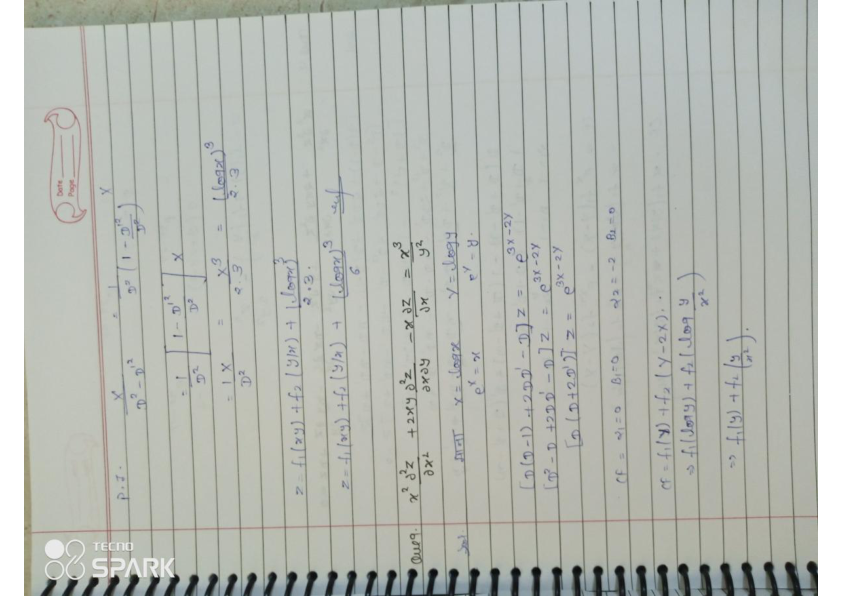 Date
Page
P.I. X / D² - D'² = 1 / D² (1 - D'²/D²) X
= 1/D² [1 - D'²/D²] X
= 1/D² X = X³ / 2·3 = (logx)³ / 2·3
z = f₁(xy) + f₂(y/x) + (logx)³ / 2·3.
z = f₁(xy) + f₂(y/x) + (logx)³ / 6
Ques. x² ∂²z/∂x² + 2xy ∂²z/∂x∂y - x ∂z/∂x = x³/y²
Sol. माना X = logx Y = logy
eˣ = x eʸ = y.
[D(D-1) + 2DD' - D] z = e³ˣ⁻²ʸ
[D² - D + 2DD' - D] z = e³ˣ⁻²ʸ
[D(D+2D')] z = e³ˣ⁻²ʸ
CF = α₁=0 β₁=0 α₂=-2 β₂=0
CF = f₁(Y) + f₂(Y-2X)..
⇒ f₁(logy) + f₂(log y/x²)
⇒ f₁(y) + f₂(y/x²).
TECNO
SPARK